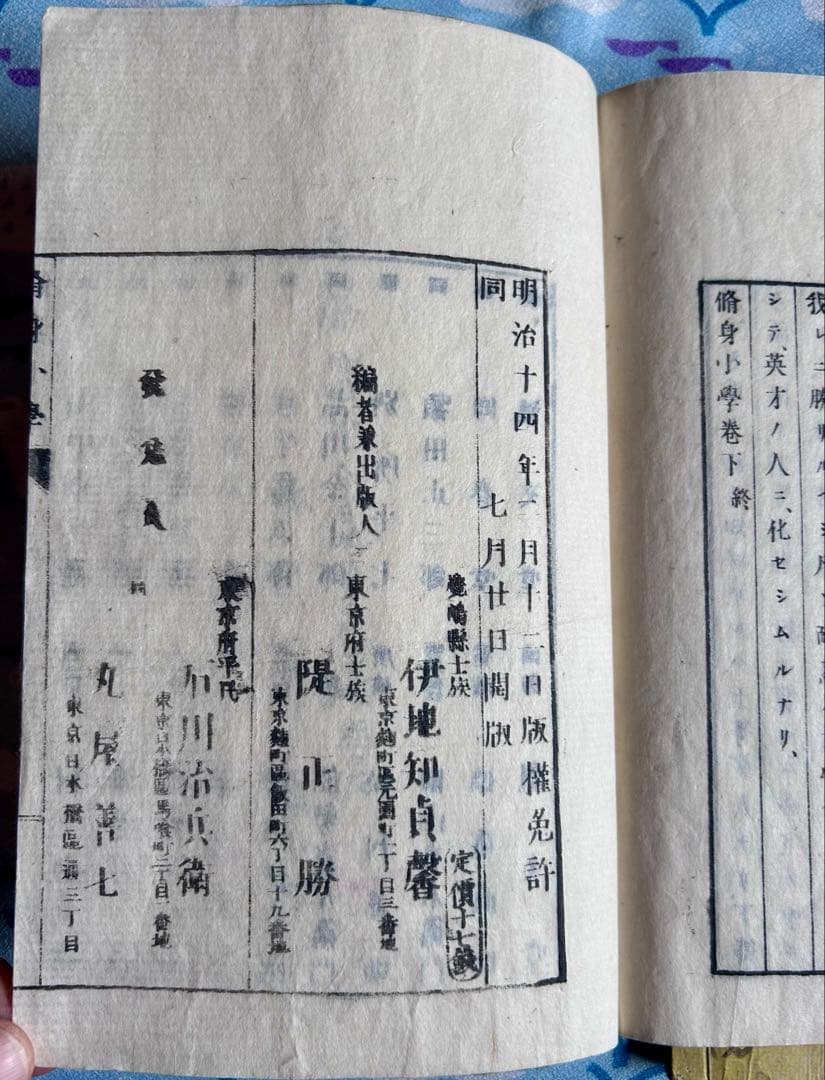 我レニ勝
シテ、英才ノ人ニ、化セシムルナリ、
脩身小學卷下終
明治十四年二月十二日版權免許
同 七月廿日開版
定價十七錢
麑嶋縣士族
伊地知貞馨
東京麹町區元園町二丁目三番地
編者兼出版人
東京府士族
隄正勝
東京麹町區飯田町六丁目十九番地
東京府平民
石川治兵衞
東京日本橋區馬喰町二丁目一番地
發兌人
同
丸屋善七
東京日本橋區通三丁目
脩身小學